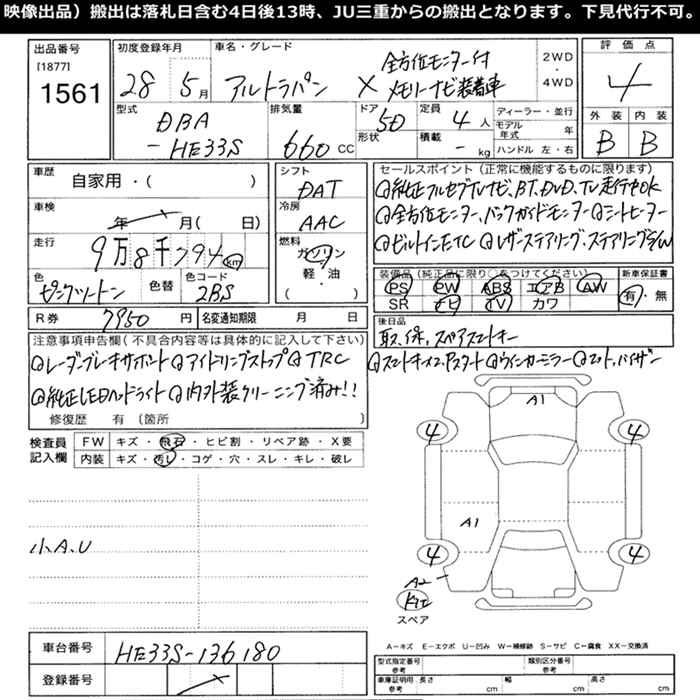 映像出品）搬出は落札日含む4日後13時、JU三重からの搬出となります。下見代行不可。
出品番号
[1877]
1561
初度登録年月
28年 5月
車名・グレード
アルトラパン X 全方位モニター付
メモリーナビ装着車
2WD
・
4WD
評価点
4
外装 内装
B B
型式
DBA
- HE33S
排気量
660 CC
ドア
形状
5D
定員 4人
積載 - kg
ディーラー・並行
モデル年式 年
ハンドル 左・右
車歴
自家用・( )
車検
年 月( 日)
走行
9万8千794km
色
ピンクツートン
色替
色コード
2BS
シフト
DAT
冷房
AAC
燃料
ガソリン
軽・油
・( )
R券 7950 円
名変通知期限 月 日
セールスポイント（正常に機能するものに限ります）
純正フルセグTVナビ、BT、DVD、TV走行中OK
全方位モニター、バックガイドモニター シートヒーター
ビルトインETC レザーステアリング、ステアリングSW
装備品（純正品に限り○をつけてください）
PS PW ABS エアB AW
SR ナビ TV カワ
新車保証書
有・無
後日品
取、保、スペアスマートキー
注意事項申告欄(不具合内容等は具体的に記入して下さい)
レーダーブレーキサポート アイドリングストップ TRC
スマートキー×2、Pスタート ウインカーミラー マット、バイザー
純正LEDヘッドライト 内外装クリーニング済み!!
修復歴 有（箇所 ）
検査員
記入欄
FW キズ・飛石・ヒビ割・リペア跡・X要
内装 キズ・汚レ・コゲ・穴・スレ・キレ・破レ
小A、U
A1
4 4
A1
4 4
A2
キズ
スペア
A－キズ E－エクボ U－凹み W－補修跡 S－サビ C－腐食 XX－交換済
車台番号 HE33S-136180
登録番号
型式指定番号
参考
類別区分番号
参考
車庫証明用
参考
長さ cm
幅 cm
高さ cm